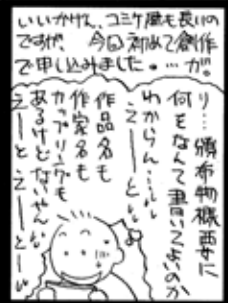 いいかげん、コミケ歴も長いの
ですが、今回初めて創作
で申し込みました。…が。
り…頒布物概要に
何もなんて書いてよいのか
わからん……
えーとぉ
作品名も
作家名も
カップリングも
あるけどないやん
えーとえーとぉ